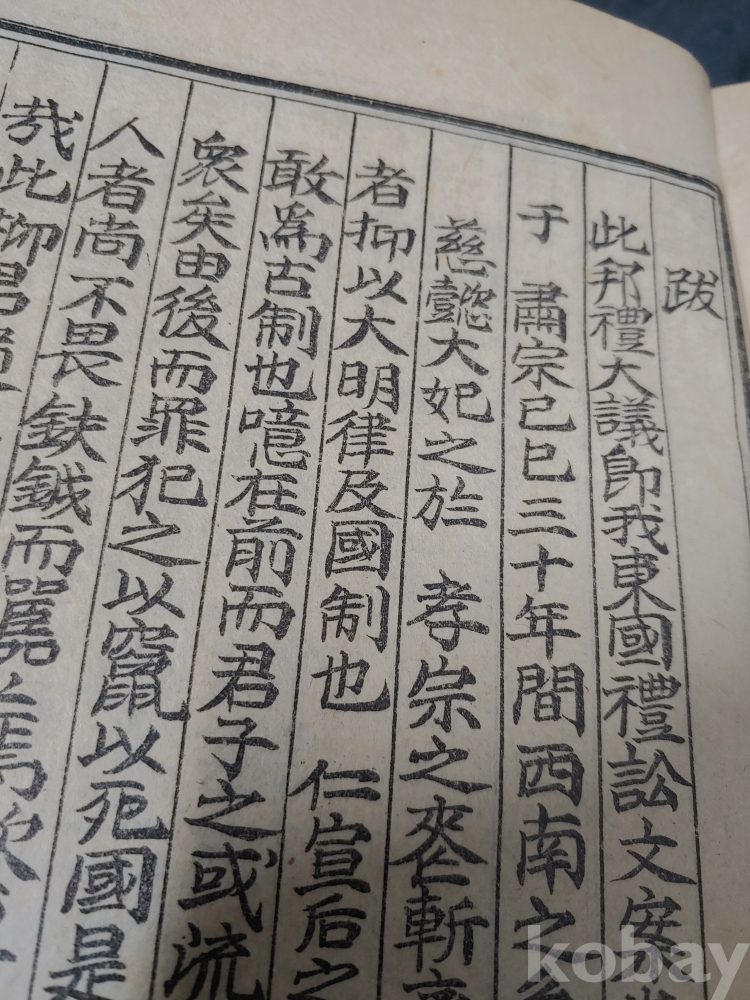 跋
此邦禮大議卽我東國禮訟文案
于 肅宗己巳三十年間西南之
慈懿大妃之於 孝宗之喪斬
者抑以大明律及國制也 仁宣后之
敢爲古制也噫在前而君子之或流
衆矣由後而罪犯之以竄以死國是
人者尚不畏鈇鉞而囂
哉此
kobay